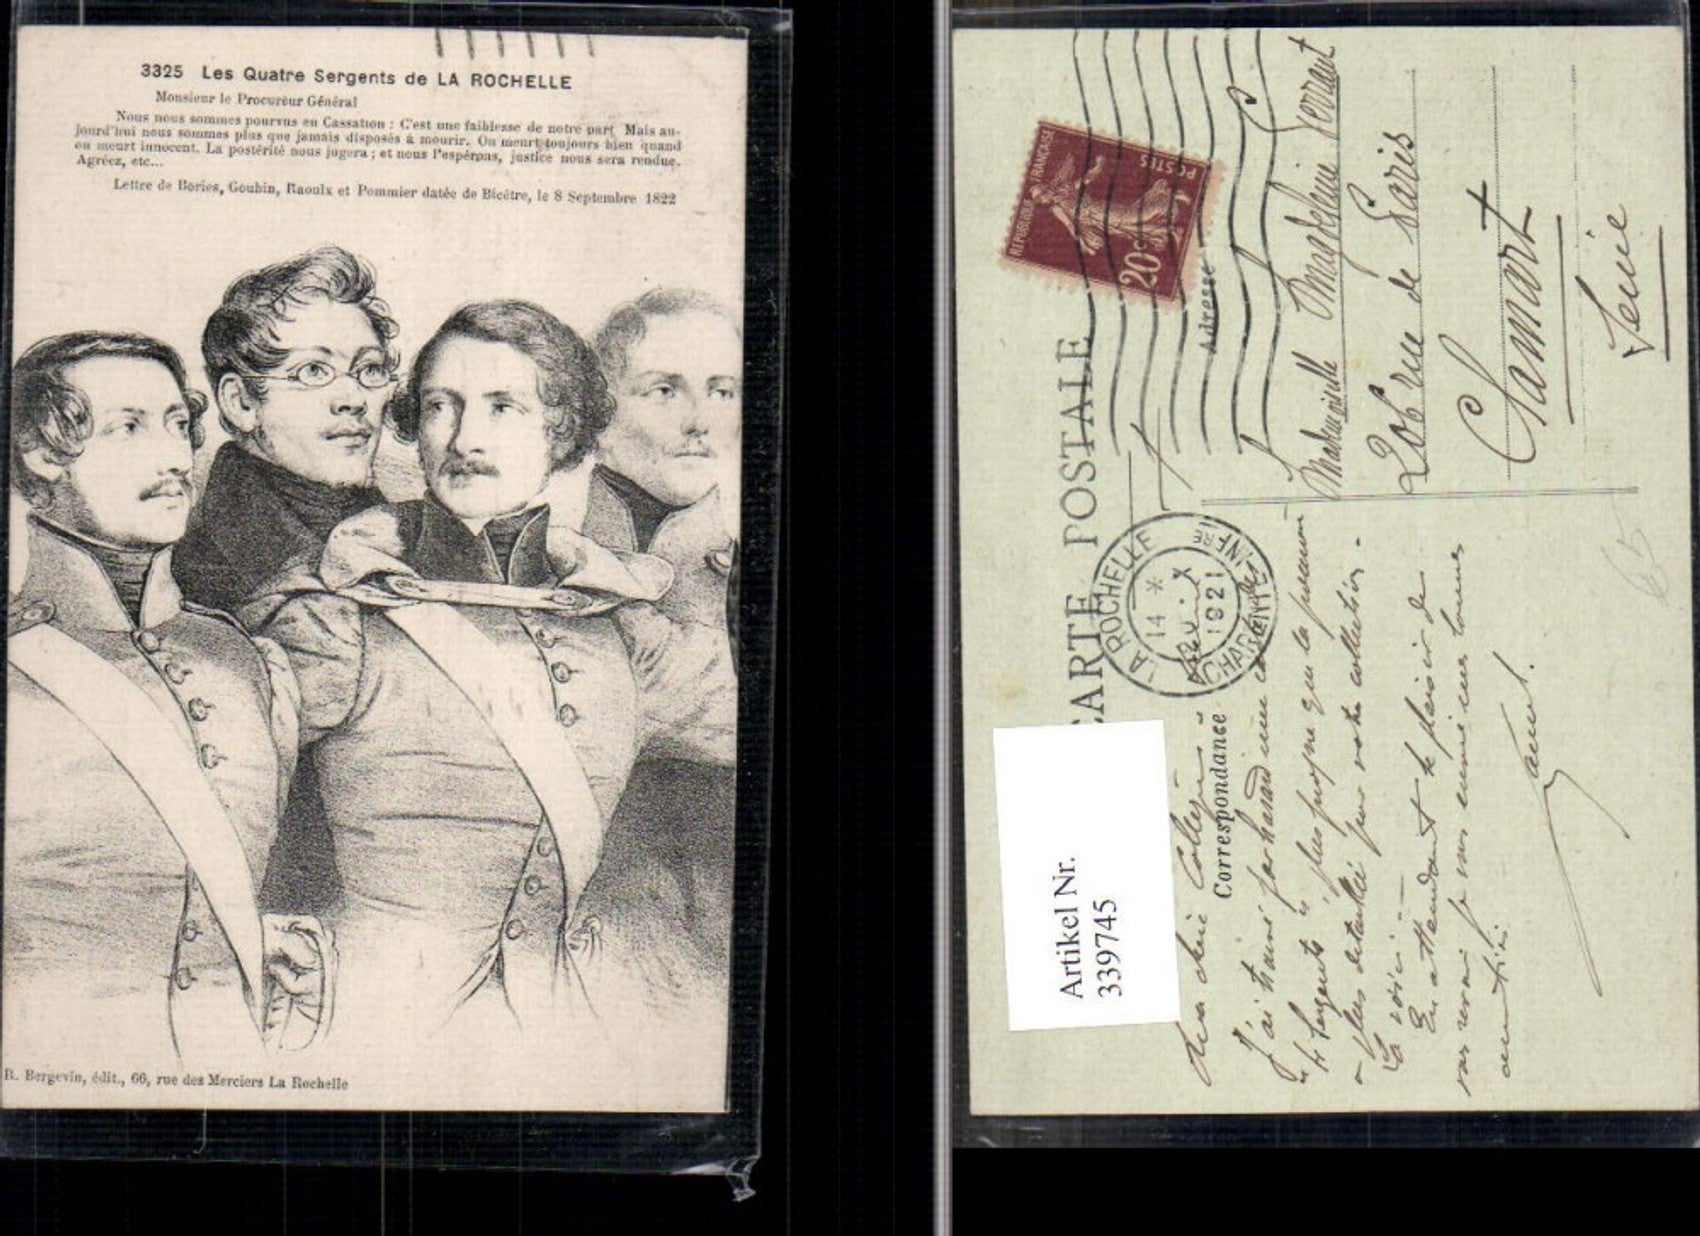 3325 Les Quatre Sergents de LA ROCHELLE
Monsieur le Procureur Général
Nous nous sommes pourvus en Cassation : C'est une faiblesse de notre part. Mais au-
jourd'hui nous sommes plus que jamais disposés à mourir. On meurt toujours bien quand
on meurt innocent. La postérité nous jugera ; et nous l'espérons, justice nous sera rendue.
Agréez, etc...
Lettre de Bories, Goubin, Raoulx et Pommier datée de Bicêtre, le 8 Septembre 1822
R. Bergevin, édit., 66, rue des Merciers La Rochelle
CARTE POSTALE
Correspondance
Adresse
REPUBLIQUE FRANÇAISE
POSTES
20c
LA ROCHELLE
14 *
X
1921
CHARENTE INFRE
Mademoiselle Magdeleine
206 rue de Paris
Clamart
Seine
Ma chère Collègue
J'ai trouvé par hasard une
"4 Sergents" plus propre que la première
plus détaillée pour votre collection -
La voici. -
En attendant le plaisir de
vous revoir je vous envoie mes bonnes
amitiés
Artikel Nr.
339745